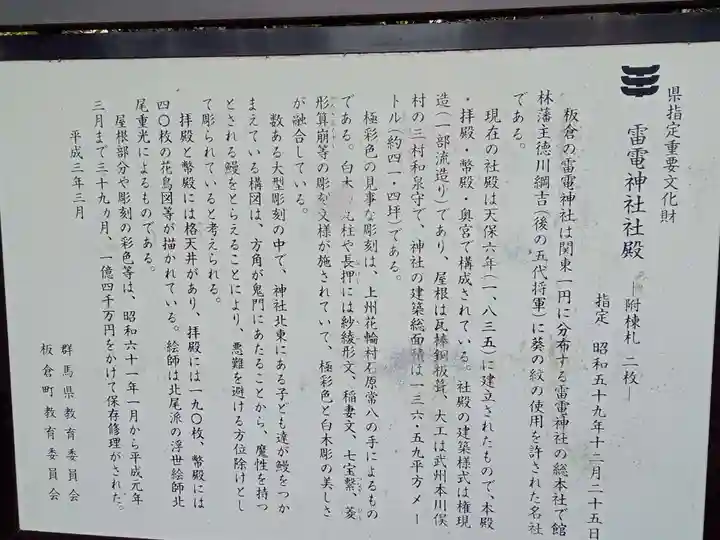 県指定重要文化財
雷電神社社殿 ―附棟札 二枚―
指定 昭和五十九年十二月二十五日
板倉の雷電神社は関東一円に分布する雷電神社の総本社で館
林藩主徳川綱吉(後の五代将軍)に葵の紋の使用を許された名社
である。
現在の社殿は天保六年(一、八三五)に建立されたもので、本殿
・拝殿・幣殿・奥宮で構成されている。社殿の建築様式は権現
造(一部流造り)であり、屋根は瓦棒銅板葺、大工は武州本川俣
村の三村和泉守で、神社の建築総面積は一三六・五九平方メー
トル(約四一・四坪)である。
極彩色の見事な彫刻は、上州花輪村石原常八の手によるもの
である。白木の丸柱や長押には紗綾形文、稲妻文、七宝繋、菱
形算崩等の彫刻文様が施されていて、極彩色と白木彫の美しさ
が融合している。
数ある大型彫刻の中で、神社北東にある子ども達が鰻をつか
まえている構図は、方角が鬼門にあたることから、魔性を持つ
とされる鰻をとらえることにより、悪難を避ける方位除けとし
て彫られていると考えられる。
拝殿と幣殿には格天井があり、拝殿には一九〇枚、幣殿には
四〇枚の花鳥図等が描かれている。絵師は北尾派の浮世絵師北
尾重光によるものである。
屋根部分や彫刻の彩色等は、昭和六十一年一月から平成元年
三月まで三十九ヵ月、一億四千万円をかけて保存修理がされた。
平成三年三月
群馬県教育委員会
板倉町教育委員会